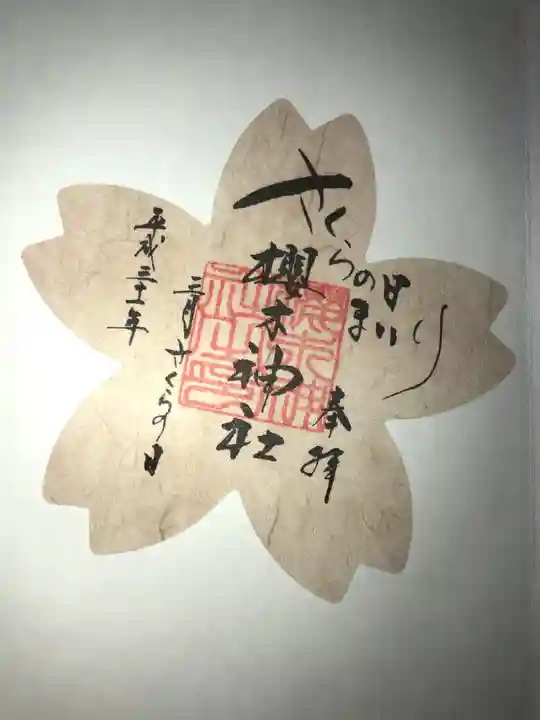 さくらの日
まいり
奉拝
櫻木神社
平成三十一年
三月さくらの日